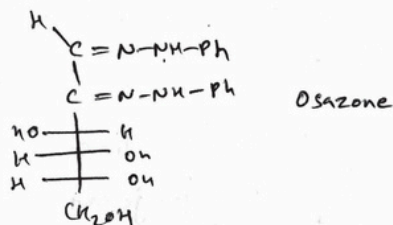 H
C=N-NH-Ph
C=N-NH-Ph
Osazone
HO H
H OH
H OH
CH2OH